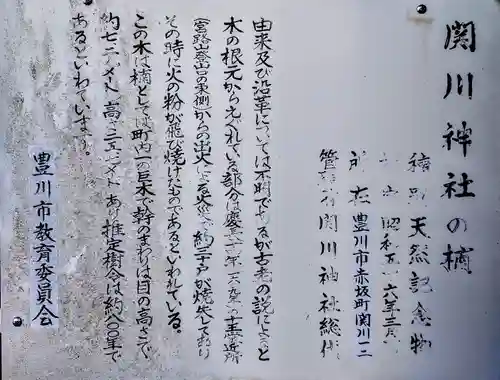 関川神社の楠
種別 天然記念物
昭和五 六年三月
所在 豊川市赤坂町関川一二
管 関川神社総代
由来及び沿革については不明であるが古老の説によると
木の根元からえぐれている部分は慶長十 年
(宮路山登山口の東側)からの出火による火災で約三十戸が焼失しており
その時に火の粉が飛び焼けたものであるといわれている。
この木は楠としては町内一の巨木で幹のまわりは目の高さで
約七 メートル 高さ メートル あり推定樹令は約八〇〇年で
あるといわれています。
豊川市教育委員会